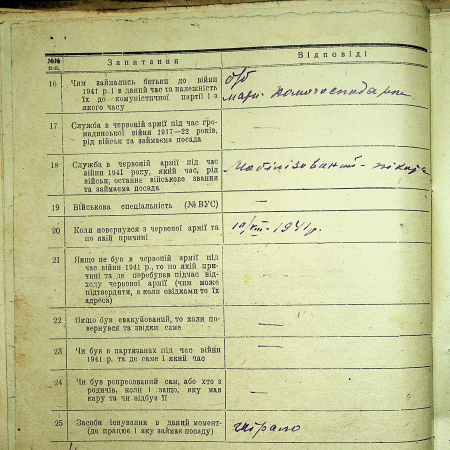 №№ п-п.
Запитання
Відповіді
16 Чим займались батьки до війни
1941 р. і в даний час та належність
їх до комуністичної партії і з
якого часу
б/п
17 Служба в червоній армії під час гро-
мадянської війни 1917—22 років,
рід військ та займаєма посада
—
18 Служба в червоній армії під час
війни 1941 року, який час, рід
військ, останнє військове звання
та займаєма посада
Мобілізований -
19 Військова спеціальність (№ ВУС)
—
20 Коли повернувся з червоної армії та
по якій причині
10/VIII - 1941 р.
21 Якщо не був в червоній армії під
час війни 1941 р., то по якій при-
чині та де перебував підчас від-
ходу червоної армії (чим може
підтвердити, а коли свідками то їх
адреса)
—
22 Якщо був евакуйований, то коли по-
вернувся та звідки саме
—
23 Чи був в партизанах під час війни
1941 р. та де саме і який час
—
24 Чи був репресований сам, або хто з
родичів, коли і защо, яку мав
кару та чи відбув її
—
25 Засоби існування в даний момент-
(де працює і яку займає посаду)